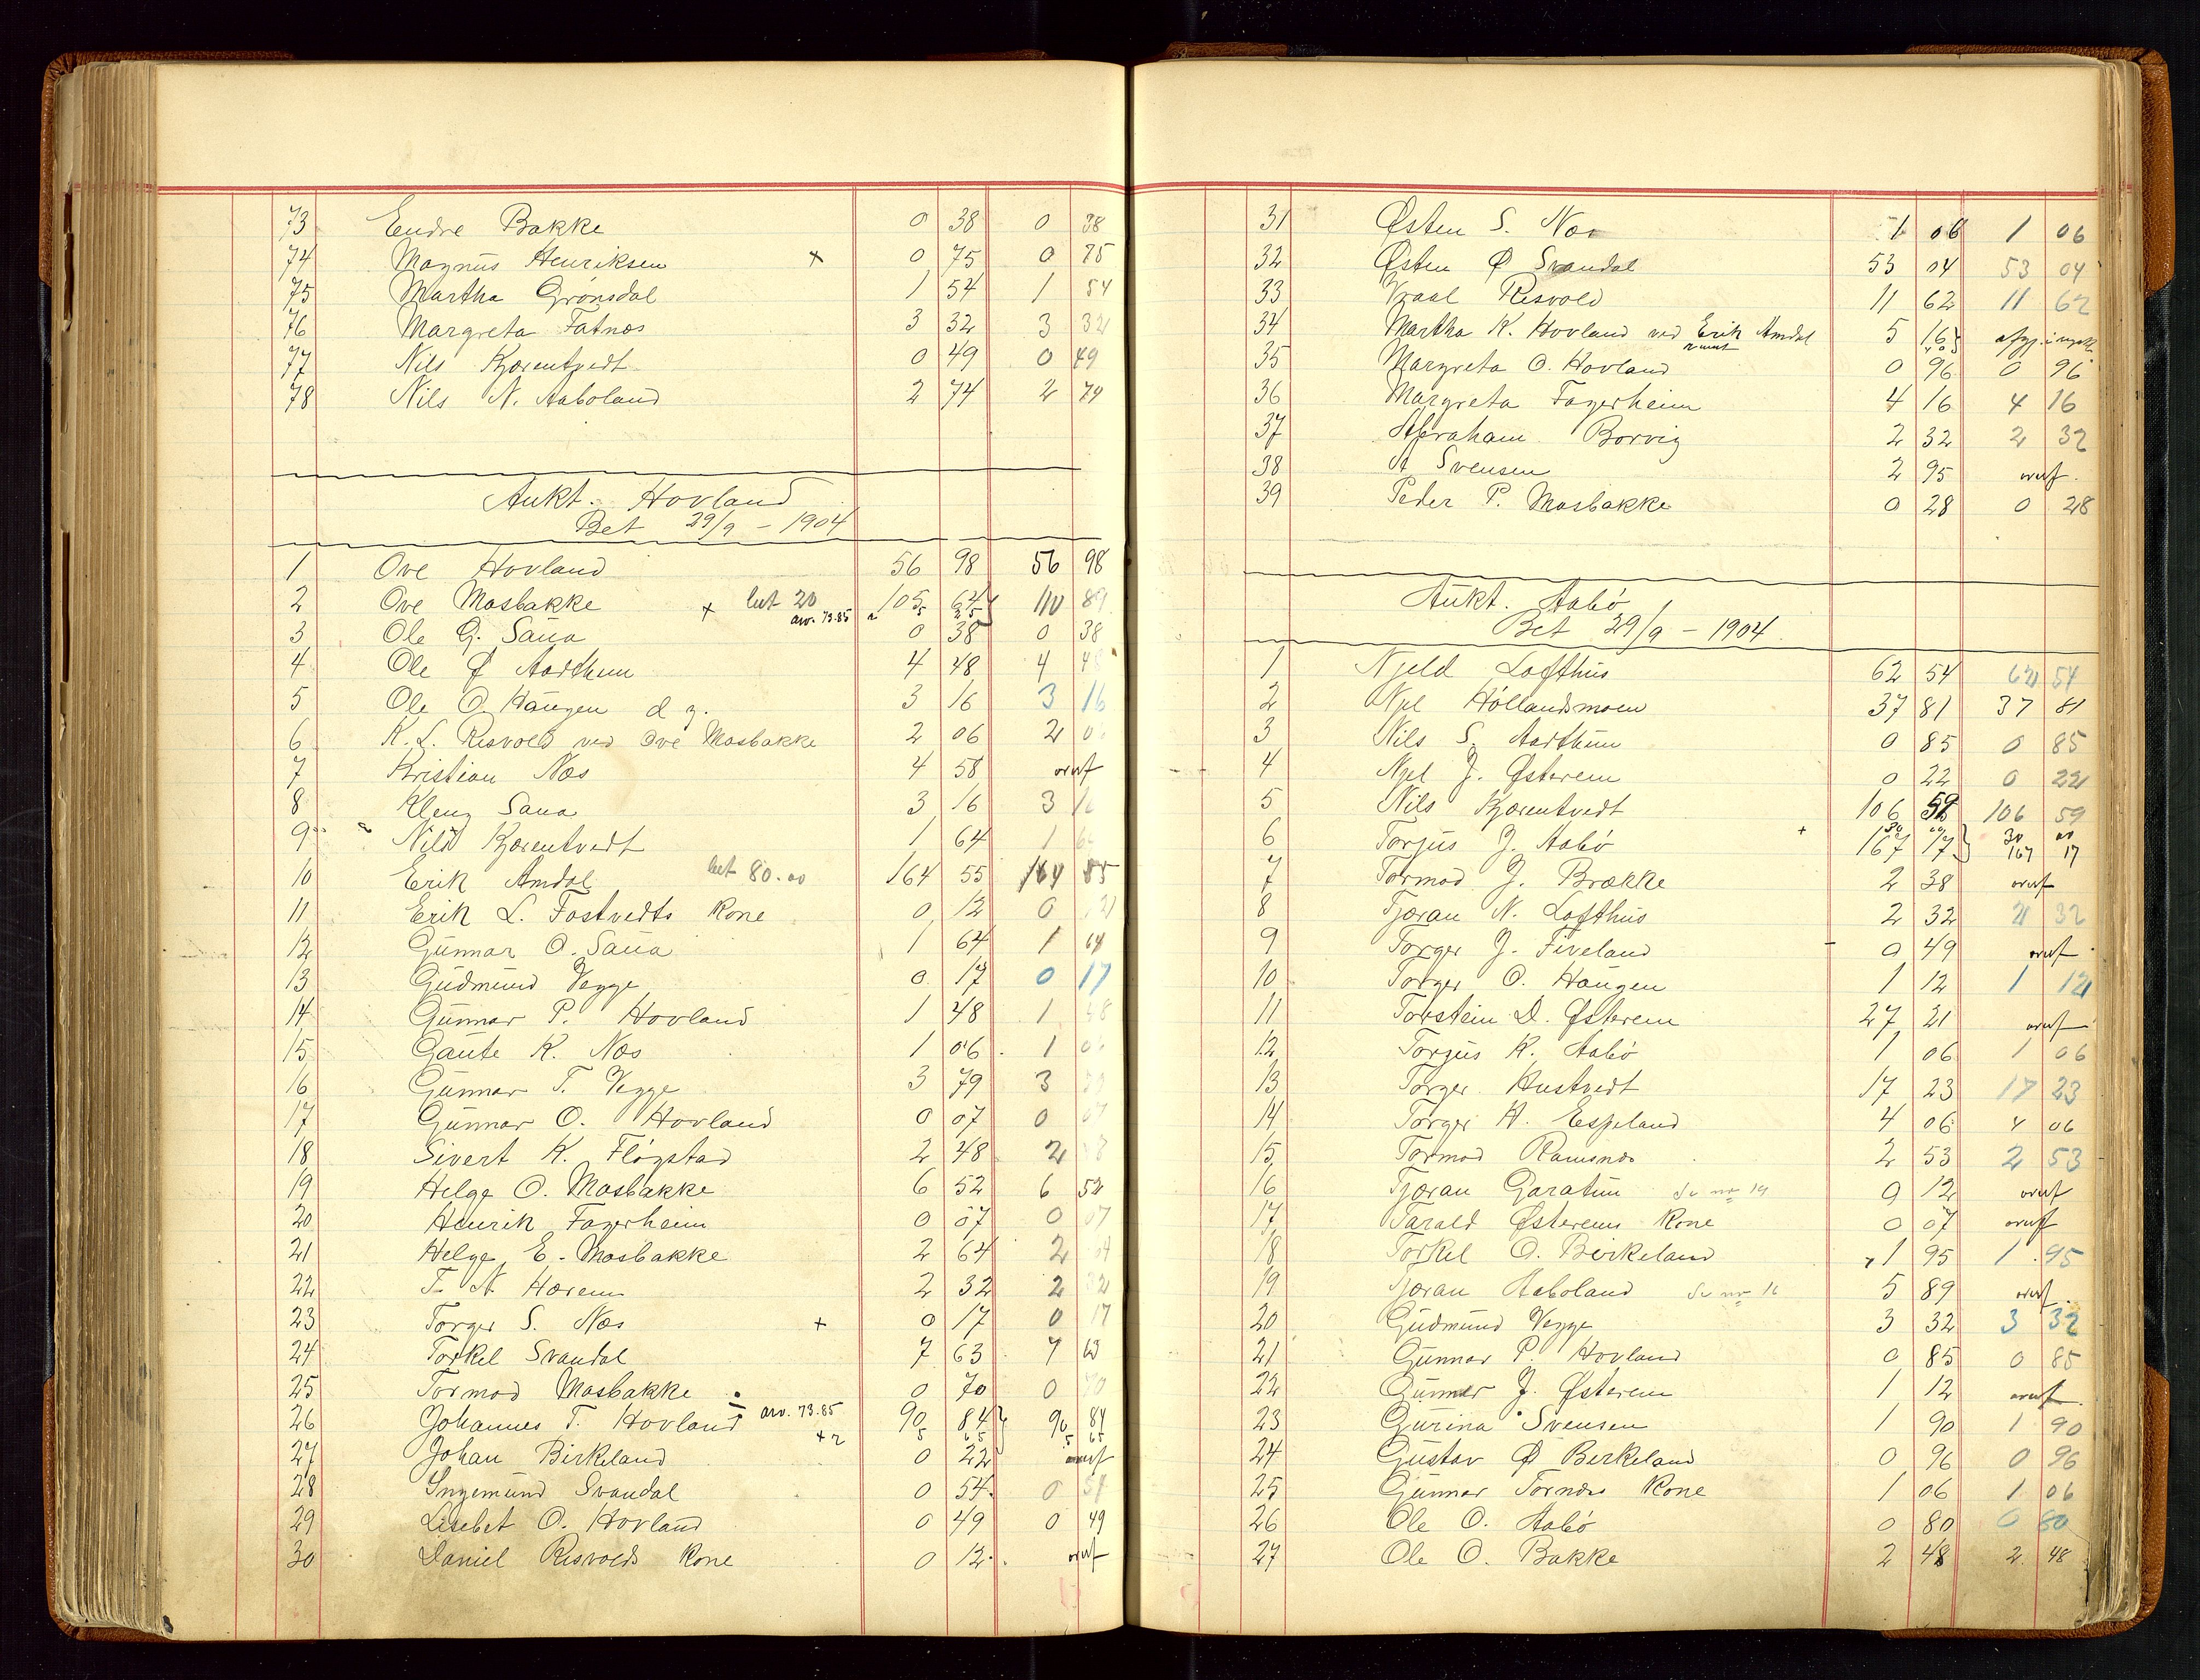 73 Endre Bakke 0 38 0 38
74 Magnus Henriksen + 0 75 0 75
75 Martha Grønsdal 1 54 1 54
76 Margreta Fatnes 3 32 3 32
77 Nils Kjørentvedt 0 49 0 49
78 Nils N. Aaboland 2 74 2 74
Aukt. Hovland
Bet 29/9 - 1904
1 Ove Hovland 56 98 56 98
2 Ove Mosbakke + bet 20 105 64 110 89
arv. 73.85 5 25
3 Ole G. Saua 0 38 0 38
4 Ole Ø Aarthun 4 48 4 48
5 Ole O. Haugen d. y. 3 16 3 16
6 K. L. Risvold ved Ove Mosbakke 2 06 2 06
7 Kristian Næs 4 58 overf
8 Kleng Saua 3 16 3 16
9 Nils Kjørentvedt 1 64 1 64
10 Erik Amdal bet 80.00 164 55 164 55
11 Erik L. Fostvedts Kone 0 12 0 12
12 Gunnar O. Saua 1 64 1 64
13 Gudmund Vegge 0 17 0 17
14 Gunnar P. Hovland 1 48 1 48
15 Gaute K. Næs 1 06 1 06
16 Gunnar T. Vegge 3 79 3 79
17 Gunnar O. Hovland 0 07 0 07
18 Sivert K. Fløgstad 2 48 2 48
19 Helge O. Mosbakke 6 52 6 52
20 Henrik Fagerheim 0 07 0 07
21 Helge E. Mosbakke 2 64 2 64
22 T. N. Hærem 2 32 2 32
23 Torger S. Næs + 0 17 0 17
24 Torkel Svandal 7 63 7 63
25 Tormod Mosbakke 0 70 0 70
26 Johannes T. Hovland arv. 73.85 90 84 90 84
5 65 5 65
27 Johan Birkeland 0 22 overf
28 Ingemund Svandal 0 54 0 54
29 Lisebet O. Hovland 0 49 0 49
30 Daniel Risvolds Kone 0 12 overf
31 Østen S. Næs 1 06 1 06
32 Østen Ø Svandal 53 04 53 04
33 Vraal Risvold 11 62 11 62
34 Martha K. Hovland ved Erik Amdal 5 16
35 Margreta O. Hovland 0 96 0 96
36 Margreta Fagerheim 4 16 4 16
37 Abraham Borvig 2 32 2 32
38 A Svensen 2 95 overf.
39 Peder P. Mosbakke 0 28 0 28
Aukt. Aabø
Bet 29/9 - 1904
1 Njeld Lofthus 62 54 62 54
2 Njel Høllandsmoen 37 81 37 81
3 Nils S. Aarthun 0 85 0 85
4 Njel J. Østerem 0 22 0 22
5 Nils Kjørentvedt 106 59 106 59
30 00 30 00
6 Torjus J. Aabø + 167 17 167 17
7 Tormod J. Brække 2 38 overf
8 Tjøran N. Lofthus 2 32 2 32
9 Torger J. Fiveland 0 49 overf
10 Torger O. Haugen 1 12 1 12
11 Torstein D. Østerem 27 21 overf
12 Torjus K. Aabø 1 06 1 06
13 Torger Hustvedt 17 23 17 23
14 Torger H. Espeland 4 06 4 06
15 Tormod Ramsnes 2 53 2 53
16 Tjøran Garatun Se no 19 9 12 overf
17 Tarald Østerems Kone 0 07 overf
18 Torkel O. Birkeland 1 95 1 95
19 Tjøran Aaboland Se no 16 5 89 overf
20 Gudmund Vegge 3 32 3 32
21 Gunnar P. Hovland 0 85 0 85
22 Gunnar J. Østerem 1 12 overf.
23 Gurina Svensen 1 90 1 90
24 Gustav Ø Berkeland 0 96 0 96
25 Gunnar Tornæs Kone 1 06 1 06
26 Ole O. Aabø 0 80 0 80
27 Ole O. Bakke 2 48 2 48